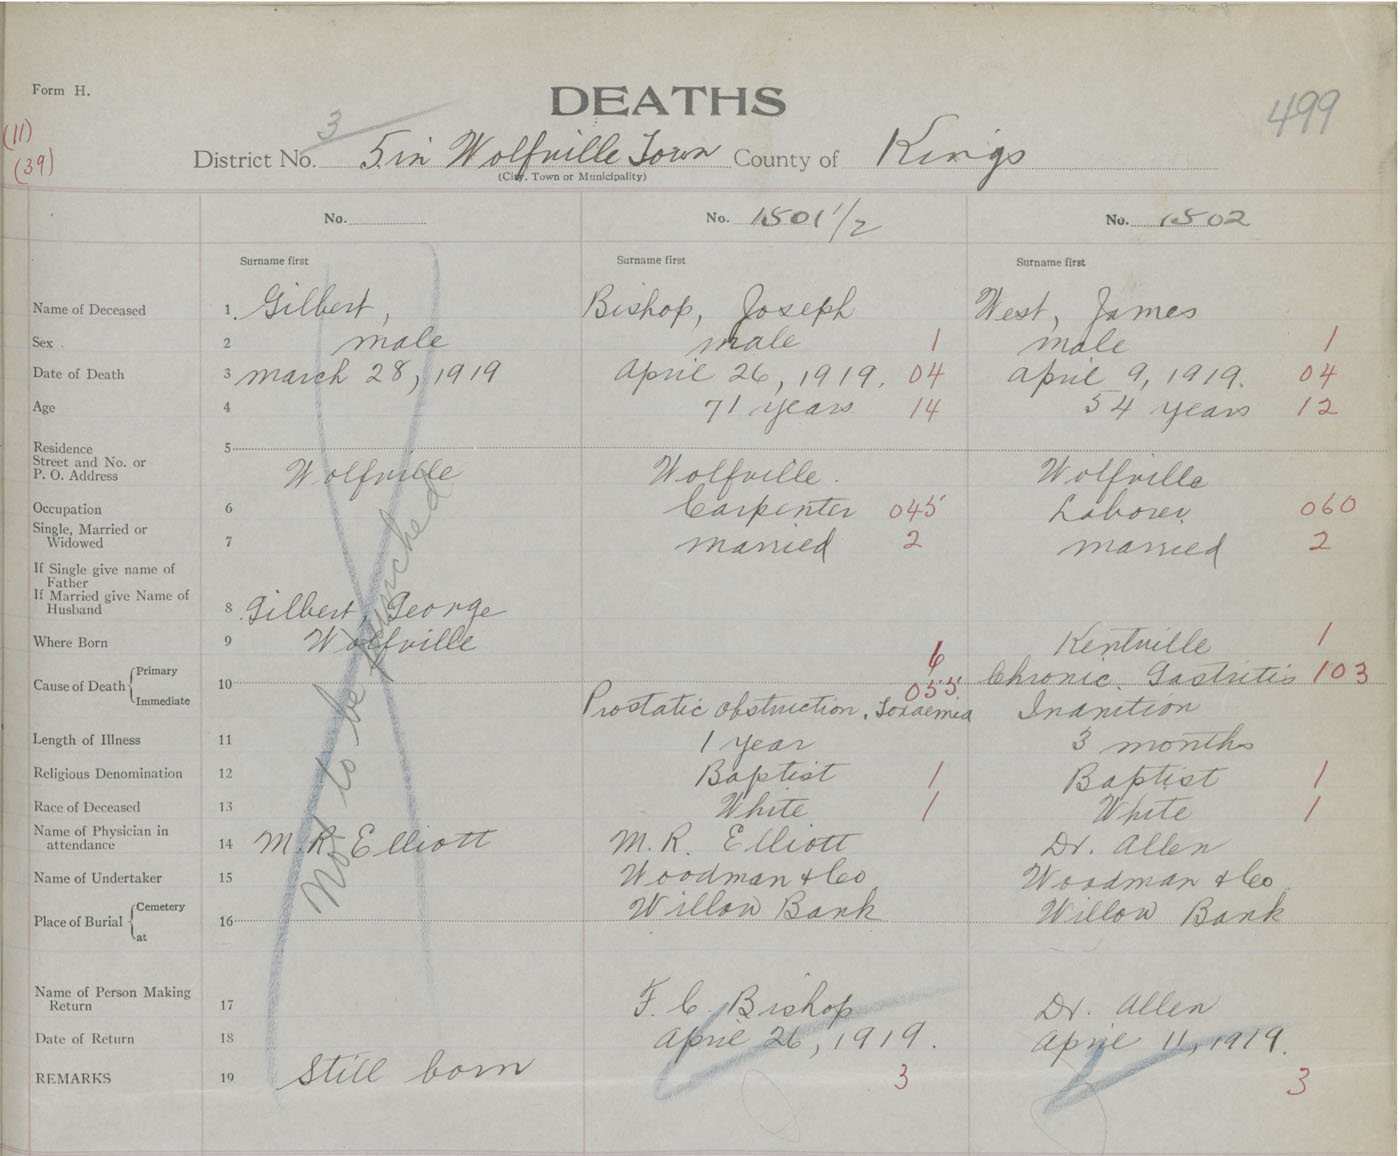 Form H.
DEATHS
499
(11)
(39)
3
District No. 5 in Wolfville Town County of Kings
(City, Town or Municipality)
No. No. 1501 1/2 No. 1502
Surname first Surname first Surname first
Name of Deceased 1 Gilbert, Bishop, Joseph West, James
Sex 2 male male 1 male 1
Date of Death 3 march 28, 1919 April 26, 1919. 04 April 9, 1919. 04
Age 4 71 years 14 54 years 12
Residence 5
Street and No. or
P. O. Address Wolfville Wolfville. Wolfville
Occupation 6 Carpenter 045 Laborer 060
Single, Married or
Widowed 7 married 2 married 2
If Single give name of
Father
If Married give Name of
Husband 8 Gilbert, George
Where Born 9 Wolfville Kentville 1
6
Cause of Death Primary 10 055 Chronic. Gastritis 103
Immediate Prostatic obstruction, Toxaemia Inanition
Length of Illness 11 1 year 3 months
Religious Denomination 12 Baptist 1 Baptist 1
Race of Deceased 13 White 1 White 1
Name of Physician in
attendance 14 M. R. Elliott M. R. Elliott Dr. Allen
Name of Undertaker 15 Woodman & Co Woodman & Co
Place of Burial Cemetery 16 Willow Bank Willow Bank
at
Name of Person Making
Return 17 F. C. Bishop Dr. Allen
Date of Return 18 April 26, 1919. April 11, 1919.
REMARKS 19 Still born 3 3
Not to be punched